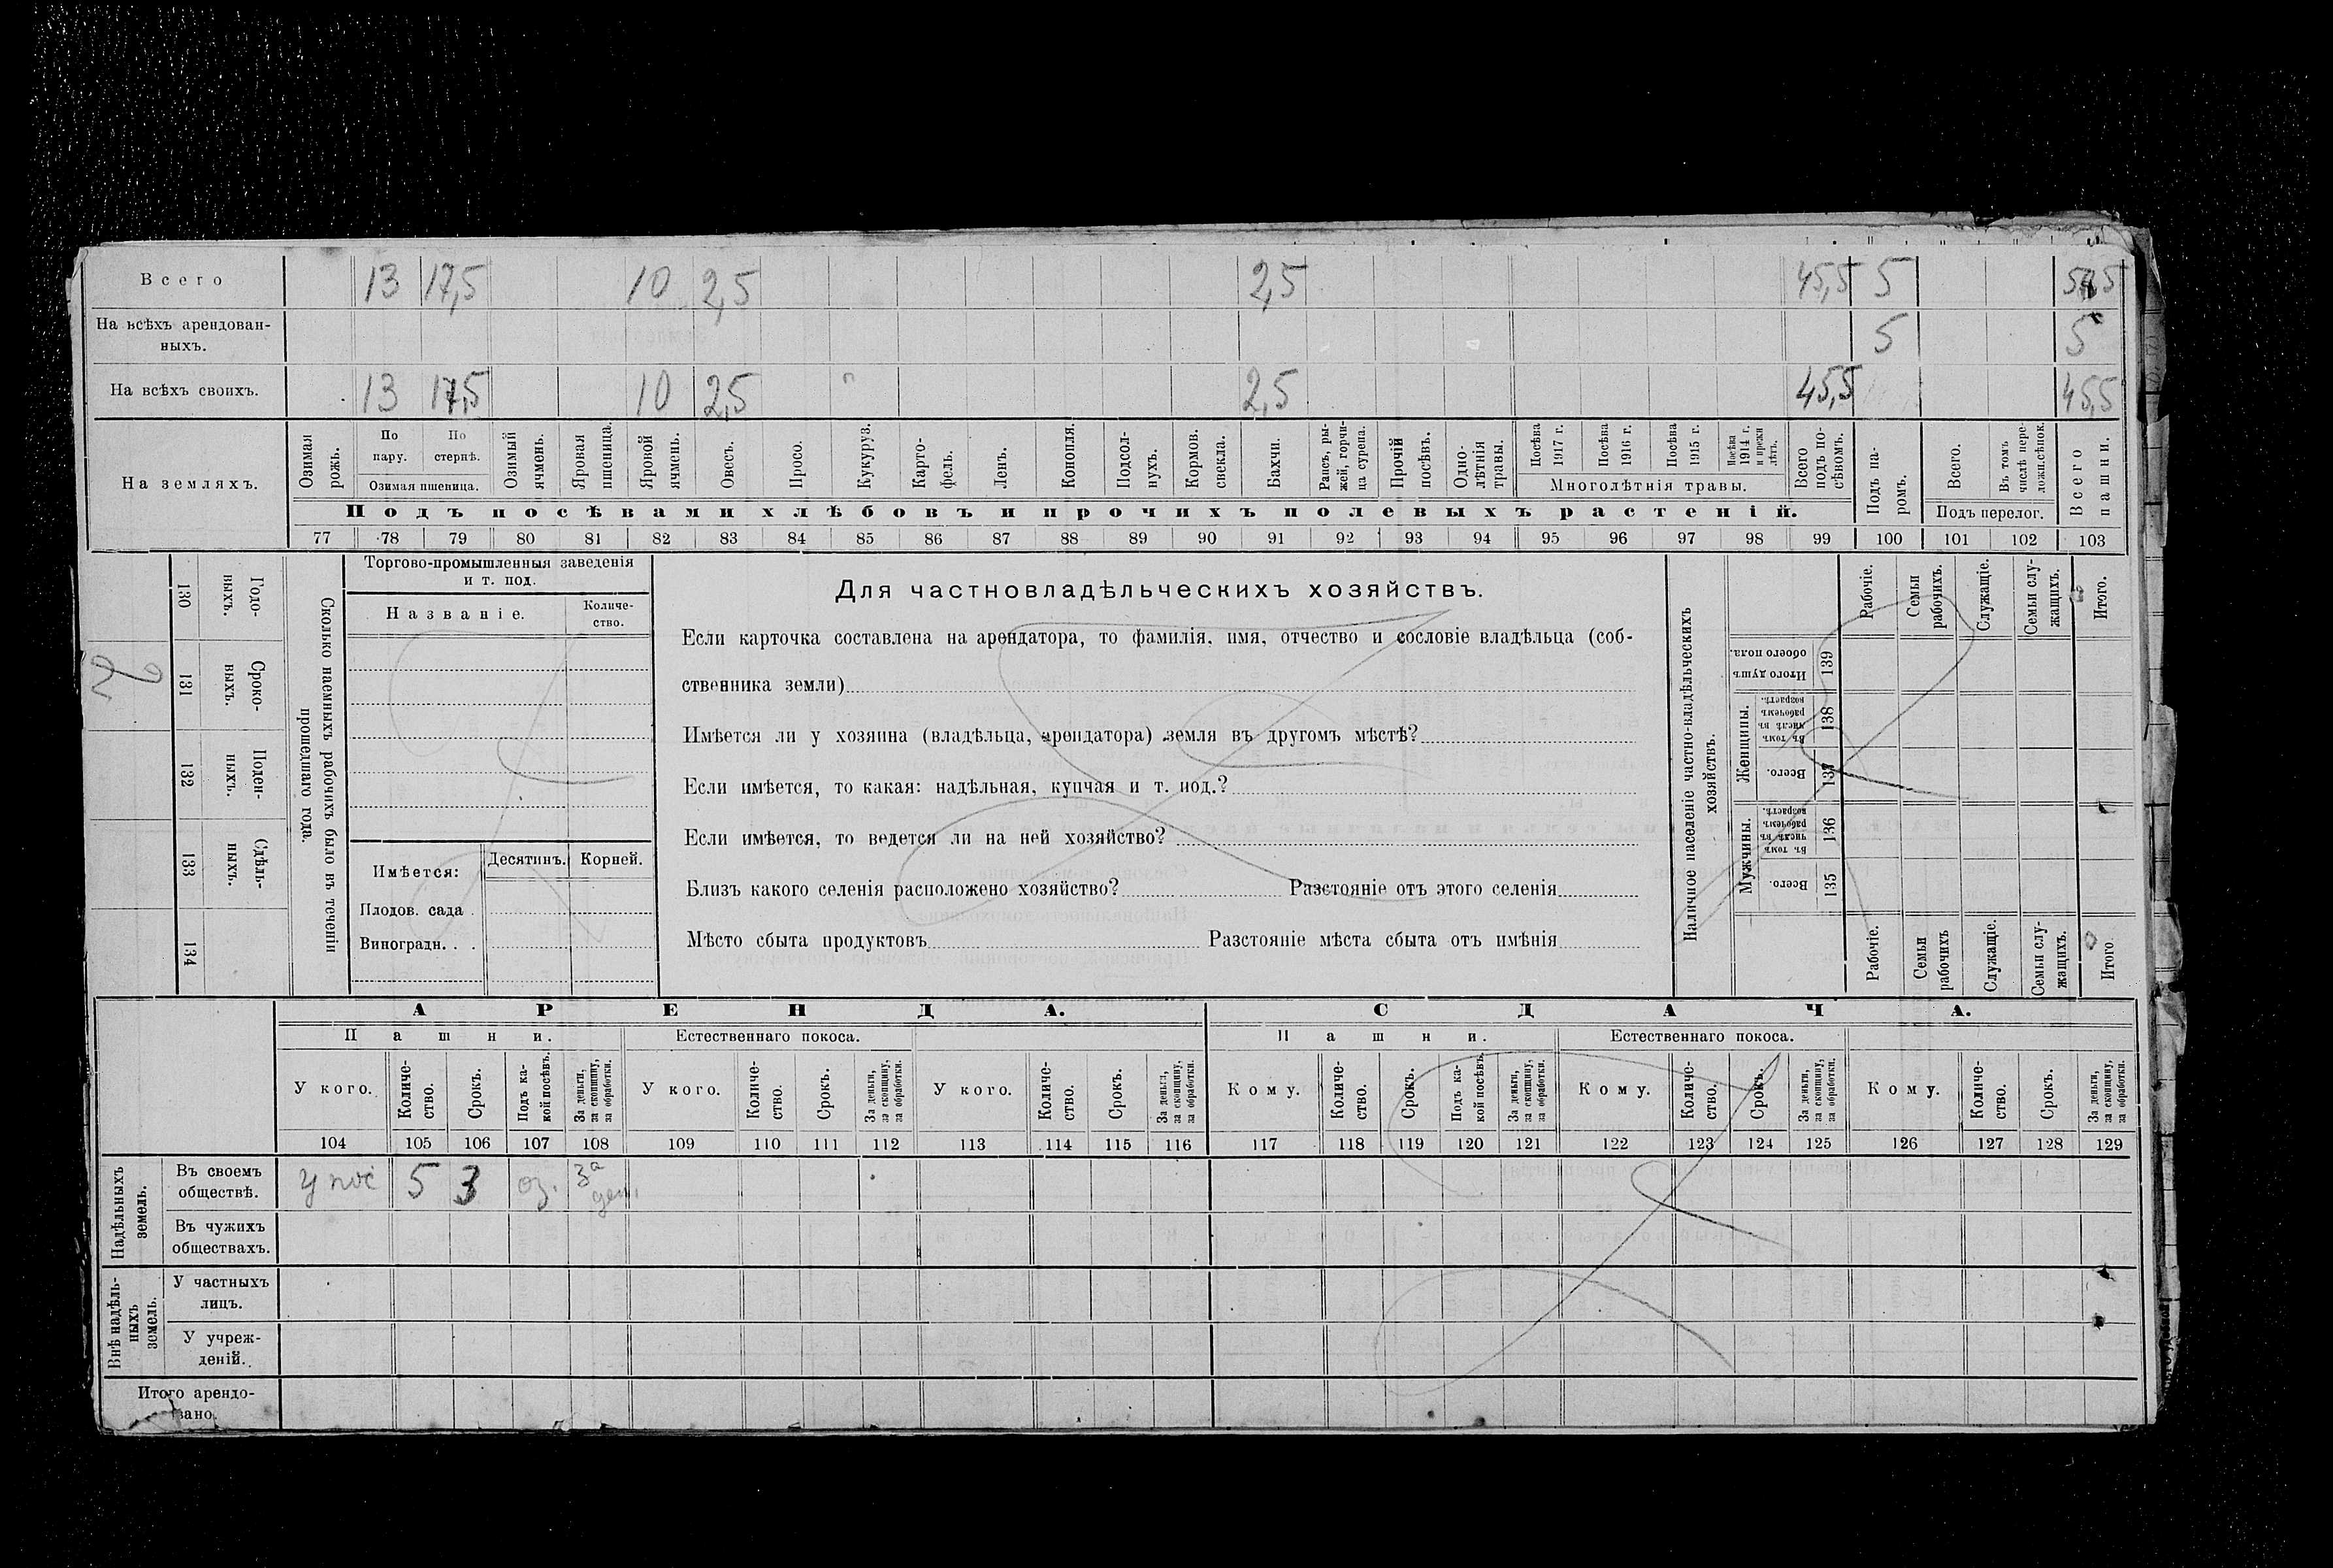 Всего 13 17,5 10 2,5 2,5 45,5 5
На всѣхъ арендован-
ныхъ. 5 5
На всѣхъ своихъ. 13 17,5 10 2,5 2,5 45,5 45,5
На земляхъ.
Озимая рожь.
По пару.
По стернѣ.
Озимая пшеница.
Озимый ячмень.
Яровая пшеница.
Яровой ячмень.
Овесъ.
Просо.
Кукуруз.
Карто-
фель.
Ленъ.
Конопля.
Подсол-
нухъ.
Кормов. свекла.
Бахчи.
Рапсъ, ры-
жей, горчи-
ца сурепа.
Прочій посѣвъ.
Одно-
лѣтнія травы.
Посѣва 1917 г.
Посѣва 1916 г.
Посѣва 1915 г.
Посѣва 1914 г. и прежн лѣтъ.
Многолѣтнія травы.
Всего подъ по-
сѣвомъ.
Подъ па-
ромъ.
Всего.
Въ томъ числѣ пере-
ложн.сѣнок.
Подъ перелог.
Всего пашни.
Подъ посѣвами хлѣбовъ и прочихъ полевыхъ растеній.
77 78 79 80 81 82 83 84 85 86 87 88 89 90 91 92 93 94 95 96 97 98 99 100 101 102 103
130 Годо-
выхъ.
131 Сроко-
выхъ.
132 Поден-
ныхъ.
133 Сдѣль-
ныхъ.
134
Сколько наемныхъ рабочихъ было въ теченіи
прошедшаго года.
Торгово-промышленныя заведенія
и т. под.
Названіе.
Количе-
ство.
Имѣется:
Десятинъ. Корней.
Плодов. сада .
Виноградн. . .
Для частновладѣльческихъ хозяйствъ.
Если карточка составлена на арендатора, то фамилія, имя, отчество и сословіе владѣльца (соб-
ственника земли)
Имѣется ли у хозяина (владѣльца, арендатора) земля въ другомъ мѣстѣ?
Если имѣется, то какая: надѣльная, купчая и т. под.?
Если имѣется, то ведется ли на ней хозяйство?
Близъ какого селенія расположено хозяйство? Разстояніе отъ этого селенія
Мѣсто сбыта продуктовъ Разстояніе мѣста сбыта отъ имѣнія
Наличное населеніе частно-владѣльческихъ
хозяйствъ.
Рабочіе.
Семьи рабочихъ.
Служащіе.
Семьи слу-
жащихъ.
Итого.
Итого душъ обоего пола. 139
Женщины.
Въ томъ числѣ въ рабочемъ возрастѣ. 138
Всего. 137
Мужчины.
Въ томъ числѣ въ рабочемъ возрастѣ. 136
Всего. 135
Рабочіе.
Семьи рабочихъ
Служащіе.
Семьи слу-
жащихъ.
Итого
АРЕНДА. СДАЧА.
Пашни. Естественнаго покоса. Пашни. Естественнаго покоса.
У кого.
Количе-
ство.
Срокъ.
Подъ ка-
кой посѣвъ.
За деньги, за скопщину, за обработки.
У кого.
Количе-
ство.
Срокъ.
За деньги, за скопщину, за обработки.
У кого.
Количе-
ство.
Срокъ.
За деньги, за скопщину, за обработки.
Кому.
Количе-
ство.
Срокъ.
Подъ ка-
кой посѣвъ.
За деньги, за скопщину, за обработки.
Кому.
Количе-
ство.
Срокъ.
За деньги, за скопщину, за обработки.
Кому.
Количе-
ство.
Срокъ.
За деньги, за скопщину, за обработки.
104 105 106 107 108 109 110 111 112 113 114 115 116 117 118 119 120 121 122 123 124 125 126 127 128 129
Надѣльныхъ земель.
Въ своемъ
обществѣ. 5 3 оз. За ден.
Въ чужихъ
обществахъ.
Внѣ надѣль-
ныхъ земель.
У частныхъ
лицъ.
У учреж-
деній.
Итого арендо-
вано.